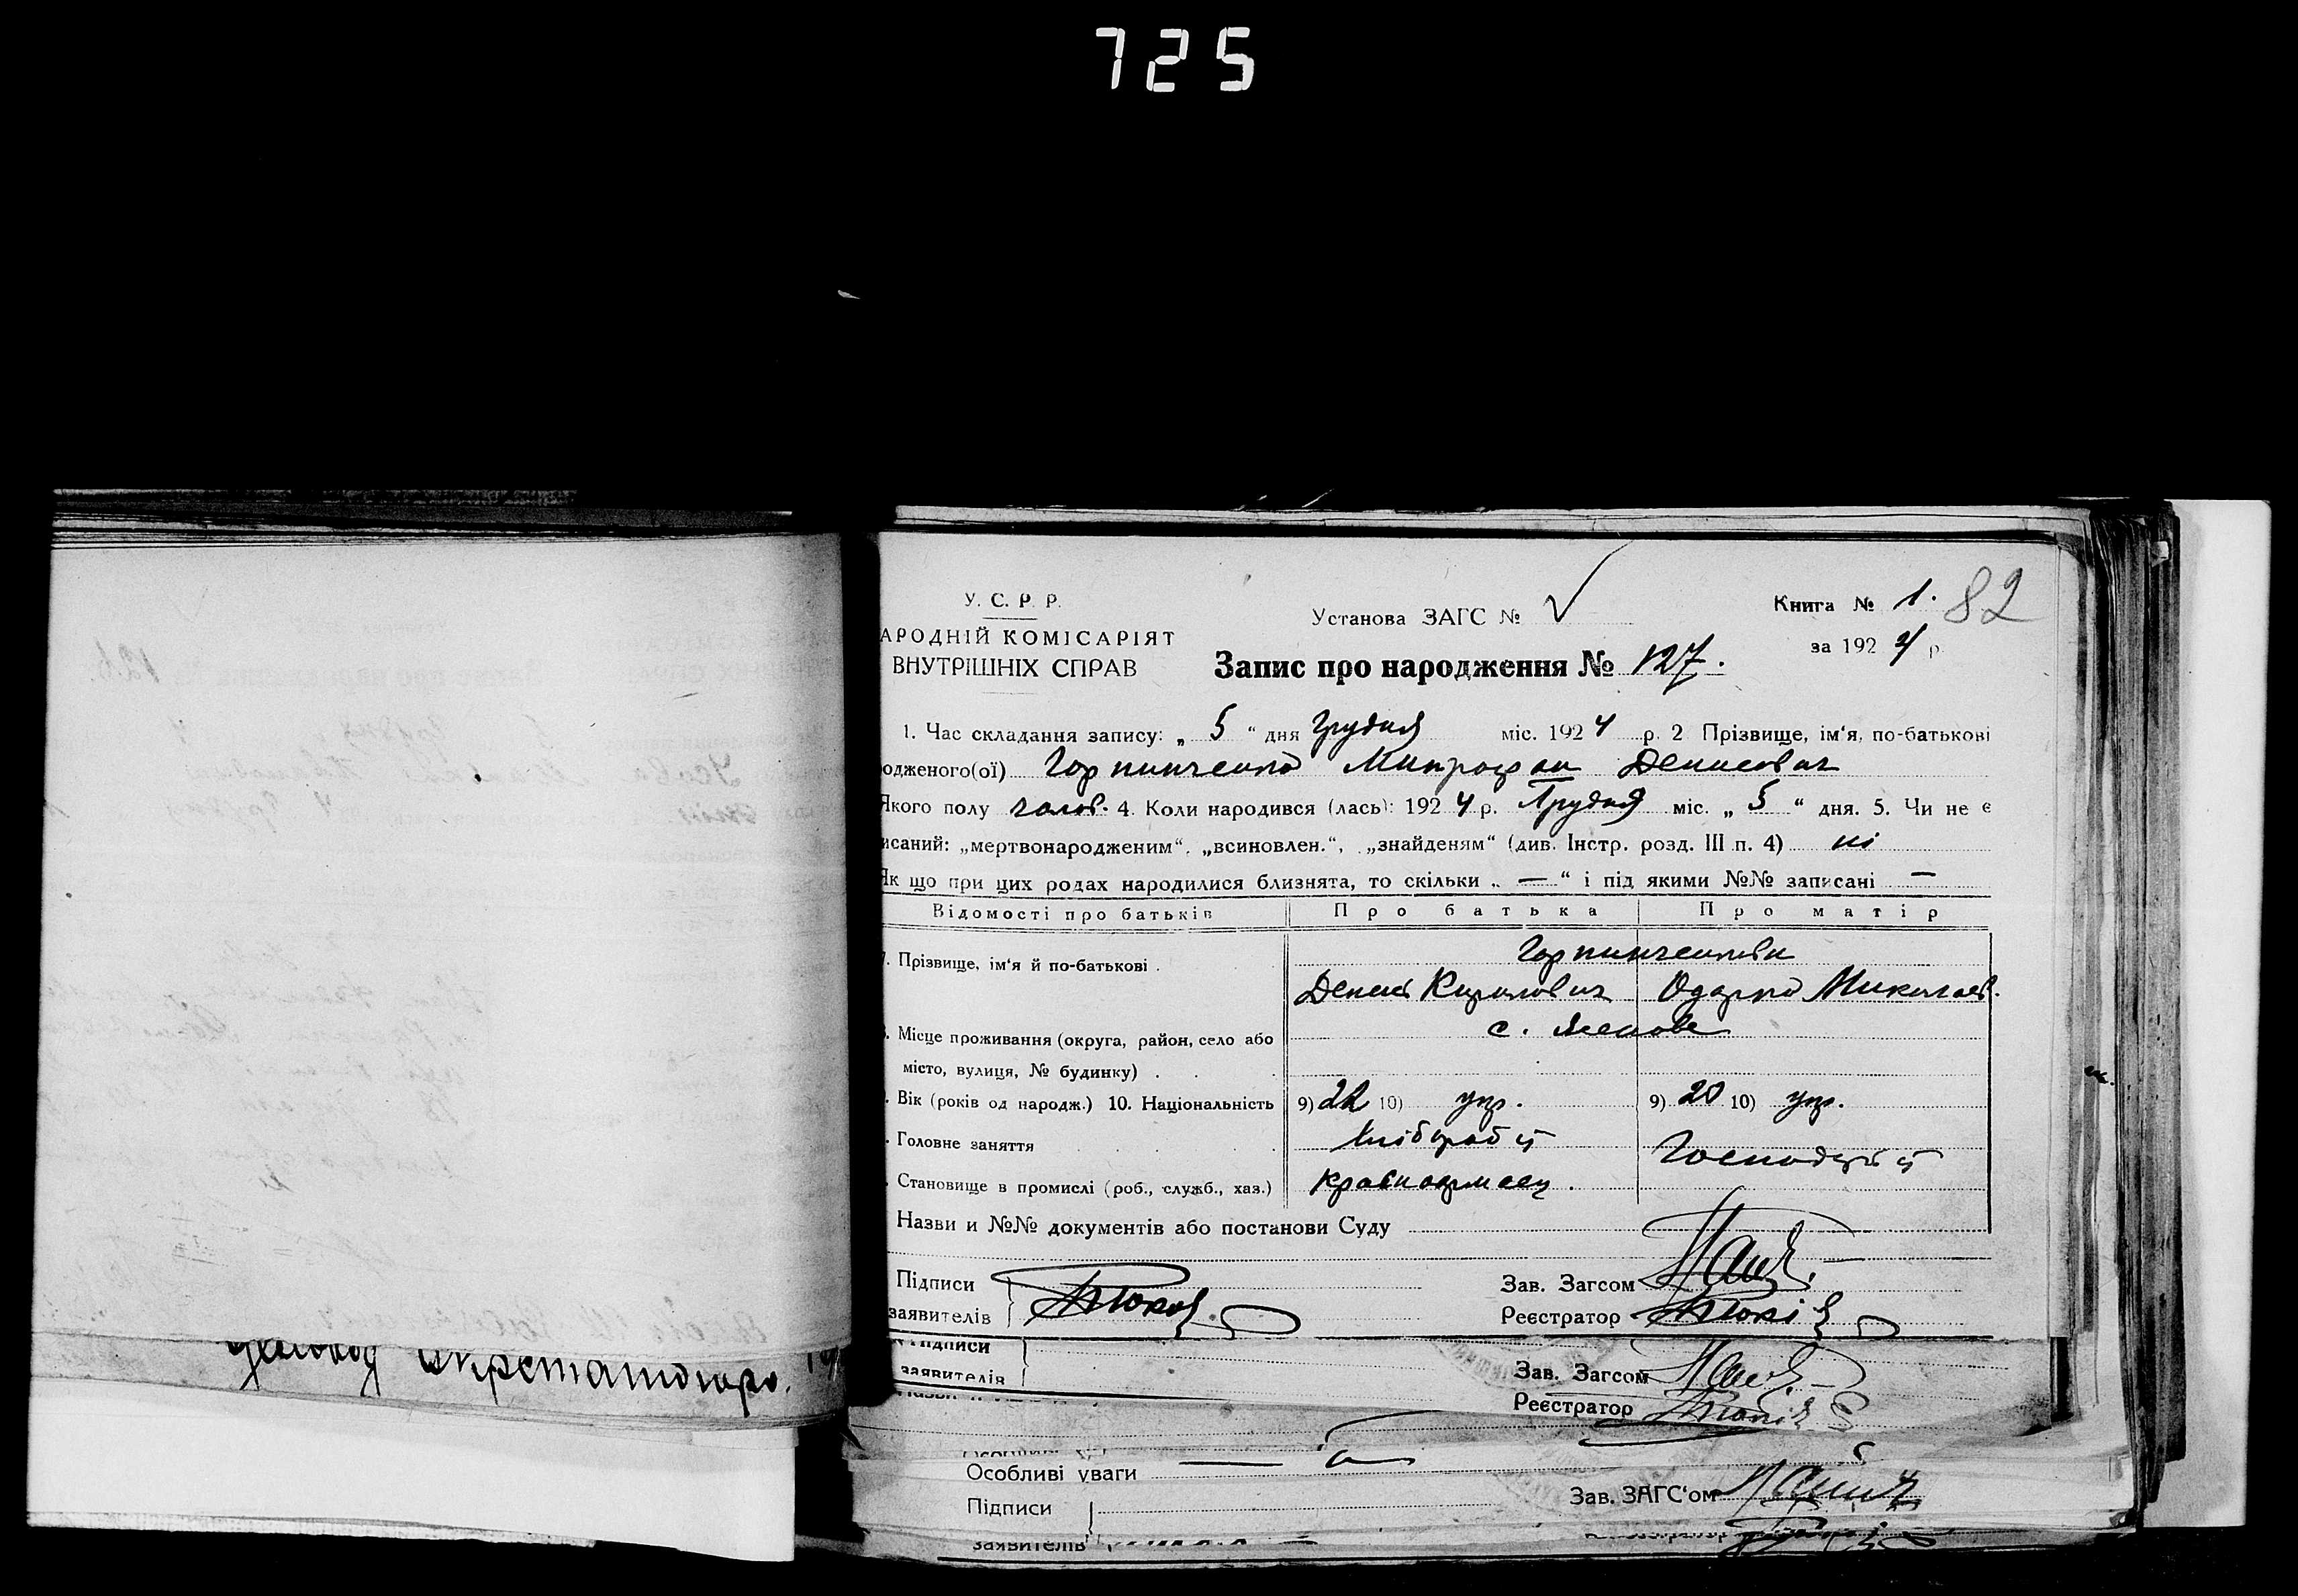 725
У. С. Р. Р.
АРОДНІЙ КОМІСАРІЯТ
ВНУТРІШНІХ СПРАВ
Установа ЗАГС № √
Книга № 1.
82
за 1924 р.
Запис про народження № 127.
1. Час складання запису: „ 5 “ дня Грудня міс. 1924 р. 2 Прізвище, ім'я, по-батькові
одженого(ої) Горпинченко Митрофан Денисович
Якого полу чолов. 4. Коли народився (лась): 1924 р. Грудня міс. „ 5 “ дня. 5. Чи не є
исаний: „мертвонародженим“, „всиновлен.“, „знайденям“ (див. Інстр. розд. III п. 4) ні
Як що при цих родах народилися близнята, то скільки „ — “ і під якими №№ записані —
Відомості про батьків Про батька Про матір
Горпинченки
7. Прізвище, ім'я й по-батькові .
Денис Кирилович Одарка Миколаєв.
с. Ясенове
Місце проживання (округа, район, село або
місто, вулиця, № будинку) . .
Вік (років од народж.) 10. Національність 9) 22 10) укр. 9) 20 10) укр.
Головне заняття Хлібороб Господар
Становище в промислі (роб., служб., хаз.) красноармеец.
Назви и №№ документів або постанови Суду
Підписи
заявителів
Зав. Загсом
Реєстратор
Підписи
заявителів
Зав. Загсом
Реєстратор
Особливі уваги
Підписи
Зав. ЗАГС'ом
заявителів